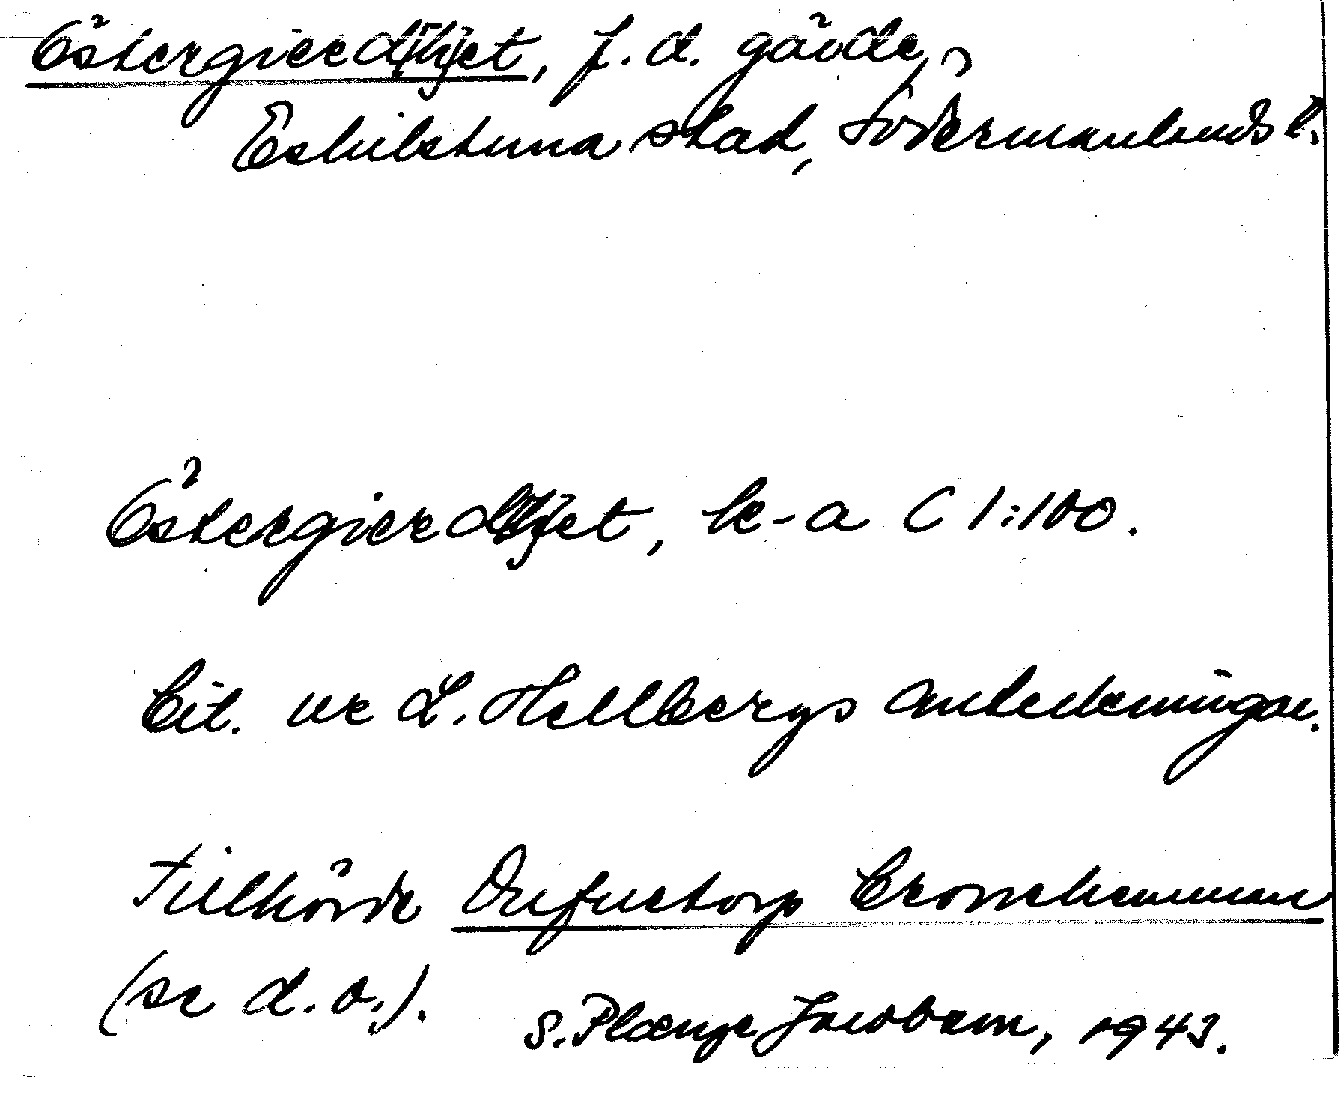 Östergierd[h]et, f. d. gärde,
Eskilstuna stad, Södermanlands l.
Östergierdhet, k-a C 1:100.
Cit. ur L. Hellbergs anteckningar.
Tillhörde Dufuetorp
(se d. o.). S. Plænge Jacobson, 1943.